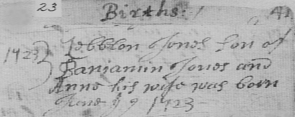 23 Births:
1723 Jebblon Jones Son of
Banjamin Jones and
Anne his wife was born
June 9 1723